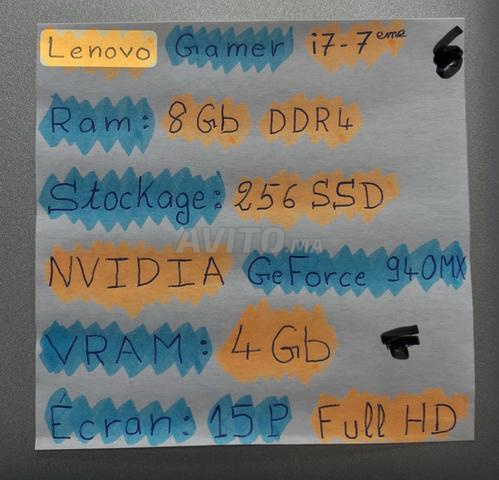 Lenovo Gamer i7-7eme 6
Ram: 8Gb DDR4
Stockage: 256 SSD
AVITO.MA
NVIDIA GeForce 940MX
VRAM: 4 Gb F
Écran: 15P Full HD